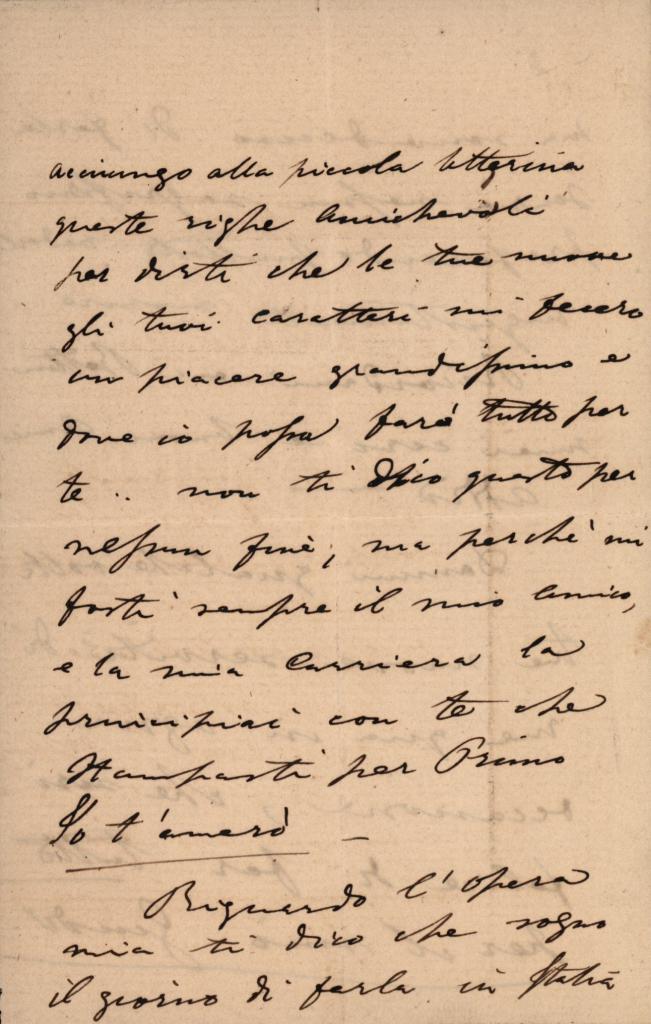 accinungo alla piccola letterina
queste righe amichevoli
per dirti che le tue nuove
gli tuoi caratteri mi fecero
un piacere grandissimo e
dove io possa farò tutto per
te .. non ti dico questo per
nessun finè, ma perchè mi
fosti sempre il mio amico,
e la mia Carriera la
principiai con te che
Stampasti per Primo
Io t'amerò —
Riguardo l'opera
mia ti dico che sogno
il giorno di farla in Italia